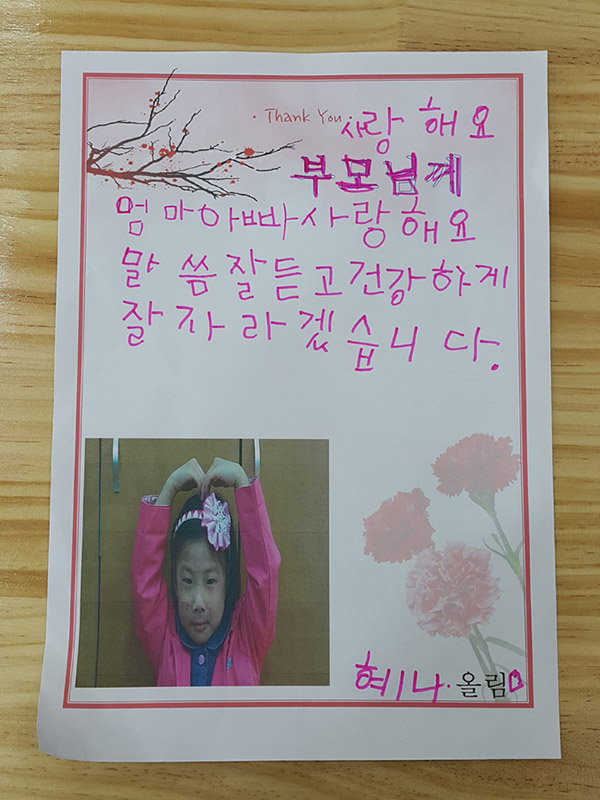 · Thank You · 사랑해요
부모님께
엄마아빠사랑해요
말씀잘듣고건강하게
잘자라겠습니다.
혜나·올림